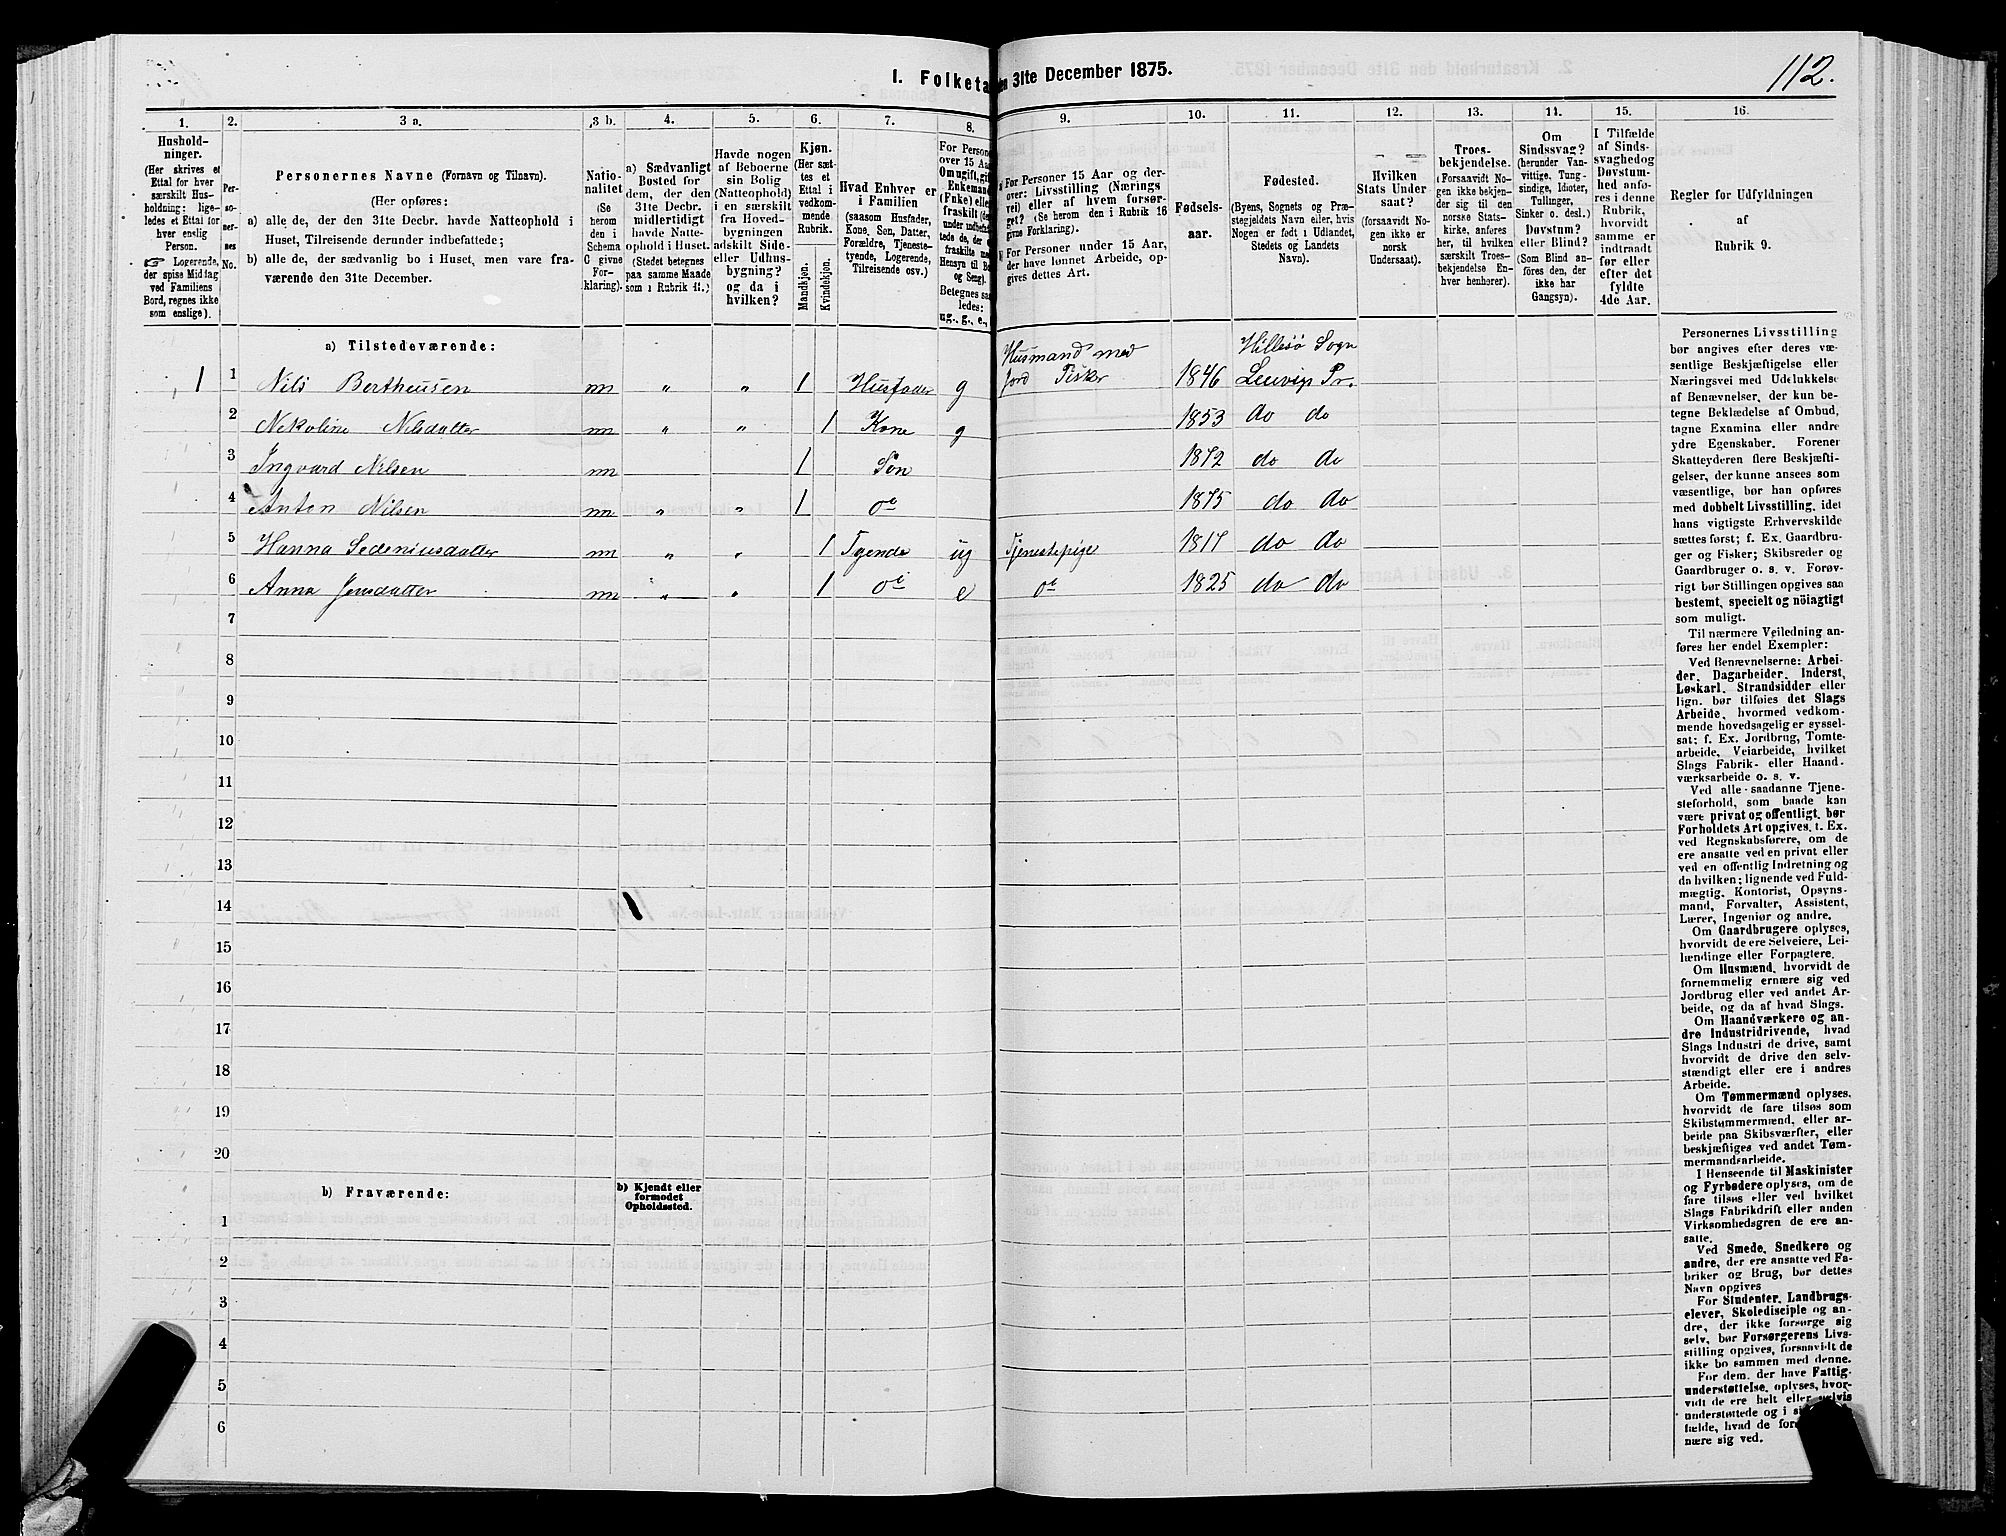 I. Folketa
en 31te December 1875.
112.
1.
Husholdninger.
(Her skrives et
Ettal for hver
særskilt Husholdning; ligeledes et Ettal for
hver enslig
Person.
☞ Logerende,
der spise Middag
ved Familiens
Bord, regnes ikke
som enslige).
2.
Personernes
No.
3 a.
Personernes Navne (Fornavn og Tilnavn).
(Her opføres:
a) alle de, der den 31te Decbr. havde Natteophold i
Huset, Tilreisende derunder indbefattede;
b) alle de, der sædvanlig bo i Huset, men vare fraværende den 31te December.
3 b.
Nationalitet
(Se
herom
den i
Schema
C givne
Forklaring).
4.
a) Sædvanligt
Bosted for
dem, der den
31te Decbr.
midlertidigt
havde Natteophold i Huset.
(Stedet betegnes
paa samme Maade
som i Rubrik 11.)
5.
Havde nogen
af Beboerne
sin Bolig
(Natteophold)
i en særskilt
fra Hovedbygningen
adskilt Side-
eller Udhusbygning?
og da i
hvilken?
6.
Kjøn.
(Her sættes et
Ettal i
vedkommende
Rubrik.
Mandkjøn.
Kvindekjøn.
7.
Hvad Enhver er
i Familien
(saasom Husfader,
Kone, Søn, Datter,
Forældre, Tjenestetyende, Logerende,
Tilreisende osv.)
8.
For Persone
over 15 Aar
Om ugift, gift
Enkemand
(Fnke) elle
fraskilt (de
Betegnes saa
ledes:
ug., g., e.,
9.
For Personer 15 Aar og derover: Livsstilling (Næringsvei) eller af hvem forsørget? (Se herom den i Rubrik 16
givne Forklaring).
For Personer under 15 Aar,
der have lønnet Arbeide, opgives dettes Art.
10.
Fødselsaar.
11.
Fødested.
(Byens, Sognets og Præstegjeldets Navn eller, hvis
Nogen er født i Udlandet,
Stedets og Landets
Navn).
12.
Hvilken
Stats Undersaat?
(forsaavidt Nogen ikke er
norsk
Undersaat).
13.
Troesbekjendelse.
(Forsaavidt Nogen ikke bekjender sig til den
norske Statskirke, anføres
her, til hvilken
særskilt Troesbekjendelse Enhver henhører).
14.
Om
Sindssvag?
(herunder Vanvittige, Tungsindige, Idioter,
Tullinger,
Sinker o. desl.)
Døvstum?
eller Blind?
(Som Blind anføres den, der
ikke har
Gangsyn).
15.
I Tilfælde
af Sindssvaghed og
Døvstumhed anføres i denne
Rubrik,
hvorvidt
samme er
indtraadt
før eller
efter det
fyldte
4de Aar.
16.
Regler for Udfyldningen
af
Rubrik 9.
a) Tilstedeværende:
1 1 Nils Bertheusen nn „ „ 1 Husfader g Husmand med Jord Fisker 1846 Hillesø Sogn Lenvigs Pr.
2 Nekoline Nilsdatter nn „ „ 1 Kone g 1853 do do
3 Ingvard Nilsen nn 1 Søn 1872 do do
4 Anton Nilsen nn „ „ 1 do 1875 do do
5 Hanna Sedeniusdatter nn „ „ 1 Tyende ug Tjenestepige 1817 do do
6 Anna Jensdatter nn „ „ 1 do e do 1825 do do
7
8
9
10
11
12
13
14
15
16
17
18
19
20
b) Fraværende:
b) Kjendt eller
formodet
Opholdssted.
1
2
3
4
5
6
Personernes Livsstilling
bør angives efter deres væsentlige Beskjæftigelse eller
Næringsvei med Udelukkelse
af Benævnelser, der kun betegne Beklædelse af Ombud,
tagne Examina eller andre
ydre Egenskaber. Forener
Skatteyderen flere Beskjæftigelser, der kunne ansees som
væsentlige, bør han opføres
med dobbelt Livsstilling, idet
hans vigtigste Erhvervskilde
sættes først; f. Ex. Gaardbruger og Fisker; Skibsreder og
Gaardbruger o. s. v. Forøvrigt bør Stillingen opgives saa
bestemt, specielt og nöiagtigt
som muligt.
Til nærmere Veiledning anføres her endel Exempler:
Ved Benævnelserne: Arbeider, Dagarbeider, Inderst,
Løskarl, Strandsidder eller
lign. bør tilføies det Slags
Arbeide, hvormed vedkommende hovedsagelig er sysselsat; f. Ex. Jordbrug, Tomtearbeide, Veiarbeide, hvilket
Slags Fabrik- eller Haandværksarbeide o. s. v.
Ved alle saadanne Tjenesteforhold, som baade kan
være privat og offentligt, bør
Forholdets Art opgives, f. Ex.
ved Regnskabsførere, om de
ere ansatte ved en privat eller
ved en offentlig Indretning og
da hvilken; lignende ved Fuldmægtig, Kontorist, Opsynsmand, Forvalter, Assistent,
Lærer, Ingeniør og andre.
Om Gaardbrugere oplyses,
hvorvidt de ere Selveiere, Leilændinge eller Forpagtere.
Om Husmænd, hvorvidt de
fornemmelig ernære sig ved
Jordbrug eller ved andet Arbeide, og da af hvad Slags.
Om Haandværkere og andre Industridrivende, hvad
Slags Industri de drive, samt
hvorvidt de drive den selvstændigt eller ere i andres
Arbeide.
Om Tømmermænd oplyses,
hvorvidt de fare tilsøs som
Skibstømmermænd, eller arbeide paa Skibsværfter, eller
beskjæftiges ved andet Tømmermandsarbeide.
I Henseende til Maskinister
og Fyrbødere oplyses, om de
fare tilsøs eller ved hvilket
Slags Fabrikdrift eller anden
Virksomhedsgren de ere ansatte.
Ved Smede, Snedkere og
andre, der ere ansatte ved Fabriker og Brug, bør dettes
Navn opgives
For Studenter, Landbrugselever, Skoledisciple og andre, der ikke forsørge sig
selv, bør Forsørgerens Livsstilling opgives, forsaavidt de
ikke bo sammen med denne.
For dem, der have Fattigunderstøttelse, oplyses, hvorvidt de ere helt eller delvis
understøttede og i
fælde, hvad de
nære sig ved.